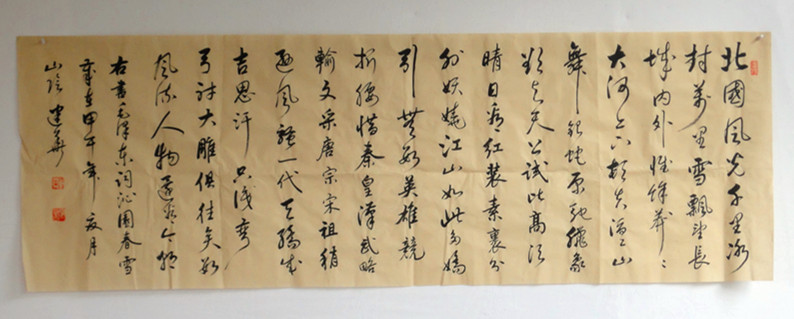 北國風光千里冰
封萬里雪飄望長
城內外惟餘莽〻
大河上下頓失滔〻山
舞銀蛇原馳蠟象
欲與天公試比高須
晴日看紅裝素裹分
外妖嬈江山如此多嬌
引無數英雄競
折腰惜秦皇漢武略
輸文采唐宗宋祖稍
遜風騷一代天驕成
吉思汗只識彎
弓射大雕俱往矣數
風流人物還看今朝
右書毛澤東詞沁園春雪
歲在甲午年夏月
山陰建華